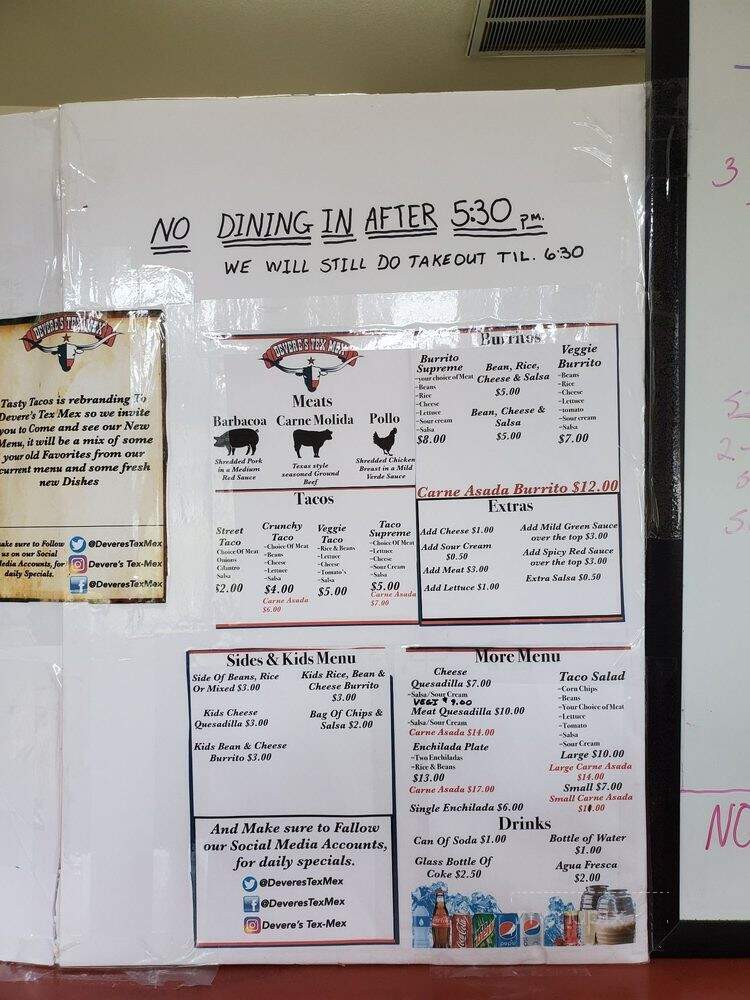 NO DINING IN AFTER 5:30 PM.
WE WILL STILL DO TAKEOUT TIL. 6:30
DEVERE'S TEX MEX
Tasty Tacos is rebranding To
Devere's Tex Mex so we invite
you to Come and see our New
Menu, it will be a mix of some
your old Favorites from our
current menu and some fresh
new Dishes
make sure to Follow
us on our Social
Media Accounts, for
daily Specials.
@DeveresTexMex
Devere's Tex-Mex
@DeveresTexMex
DEVERE'S TEX MEX
Meats
Barbacoa
Shredded Pork
in a Medium
Red Sauce
Carne Molida
Texas style
seasoned Ground
Beef
Pollo
Shredded Chicken
Breast in a Mild
Verde Sauce
Tacos
Street
Taco
Choice Of Meat
Onions
Cilantro
Salsa
$2.00
Crunchy
Taco
-Choice Of Meat
-Beans
-Cheese
-Lettuce
-Salsa
$4.00
Carne Asada
$6.00
Veggie
Taco
-Rice & Beans
-Lettuce
-Cheese
-Tomato's
-Salsa
$5.00
Taco
Supreme
-Choice Of Meat
-Lettuce
-Cheese
-Sour Cream
-Salsa
$5.00
Carne Asada
$7.00
Burritos
Burrito
Supreme
-your choice of Meat
-Beans
-Rice
-Cheese
-Lettuce
-Sour cream
-Salsa
$8.00
Bean, Rice,
Cheese & Salsa
$5.00
Bean, Cheese &
Salsa
$5.00
Veggie
Burrito
-Beans
-Rice
-Cheese
-Lettuce
-tomato
-Sour cream
-Salsa
$7.00
Carne Asada Burrito $12.00
Extras
Add Cheese $1.00
Add Sour Cream
$0.50
Add Meat $3.00
Add Lettuce $1.00
Add Mild Green Sauce
over the top $3.00
Add Spicy Red Sauce
over the top $3.00
Extra Salsa $0.50
Sides & Kids Menu
Side Of Beans, Rice
Or Mixed $3.00
Kids Cheese
Quesadilla $3.00
Kids Bean & Cheese
Burrito $3.00
Kids Rice, Bean &
Cheese Burrito
$3.00
Bag Of Chips &
Salsa $2.00
And Make sure to Fallow
our Social Media Accounts,
for daily specials.
@DeveresTexMex
@DeveresTexMex
Devere's Tex-Mex
More Menu
Cheese
Quesadilla $7.00
-Salsa/Sour Cream
VEGI $9.00
Meat Quesadilla $10.00
-Salsa/Sour Cream
Carne Asada $14.00
Enchilada Plate
-Two Enchiladas
-Rice & Beans
$13.00
Carne Asada $17.00
Single Enchilada $6.00
Taco Salad
-Corn Chips
-Beans
-Your Choice of Meat
-Lettuce
-Tomato
-Salsa
-Sour Cream
Large $10.00
Large Carne Asada
$14.00
Small $7.00
Small Carne Asada
$10.00
Drinks
Can Of Soda $1.00
Glass Bottle Of
Coke $2.50
Bottle of Water
$1.00
Agua Fresca
$2.00
pepsi
3
NO